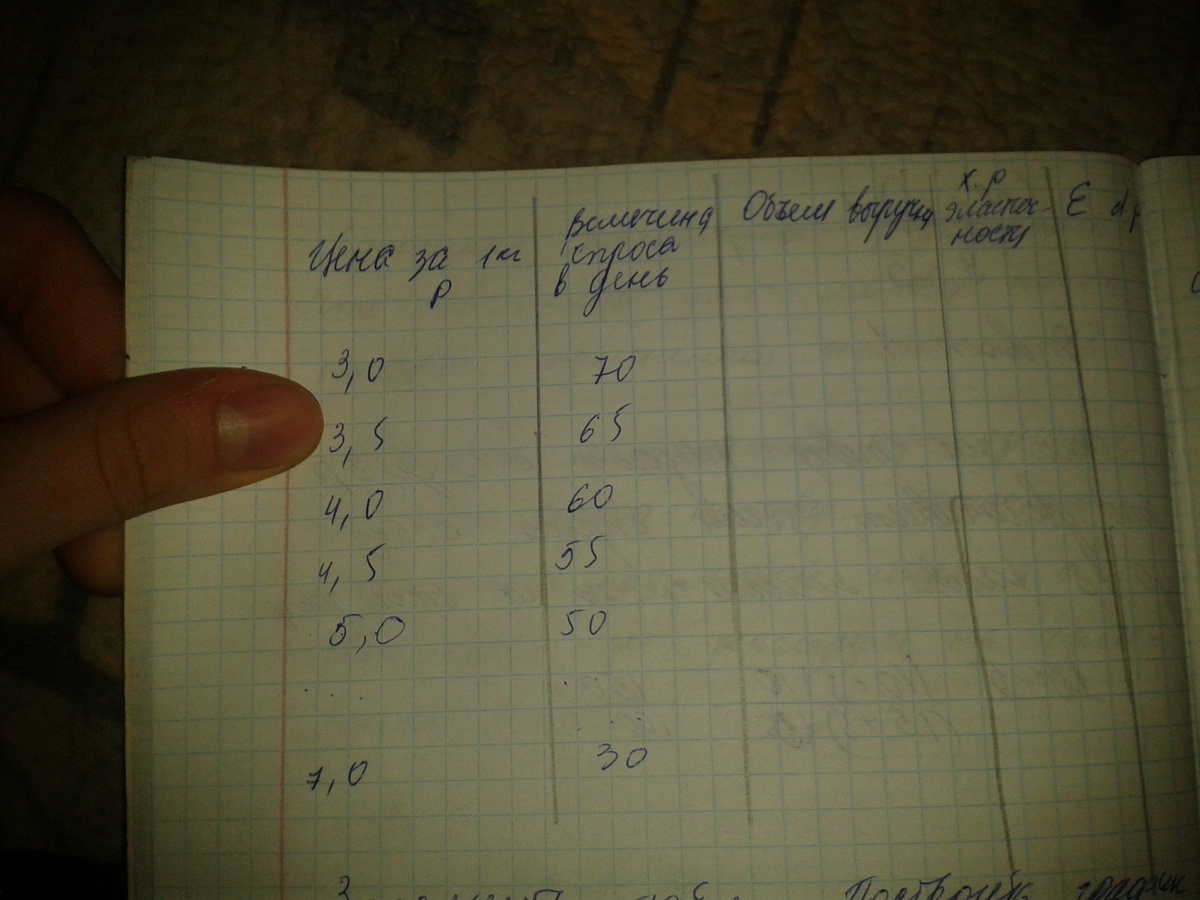 Цена за 1кг
р
величина
спроса
в день
Объем выручки
х.р
эластич-
ность
Е d p
3,0 70
3,5 65
4,0 60
4,5 55
5,0 50
. . . . . .
7,0 30
Построить график